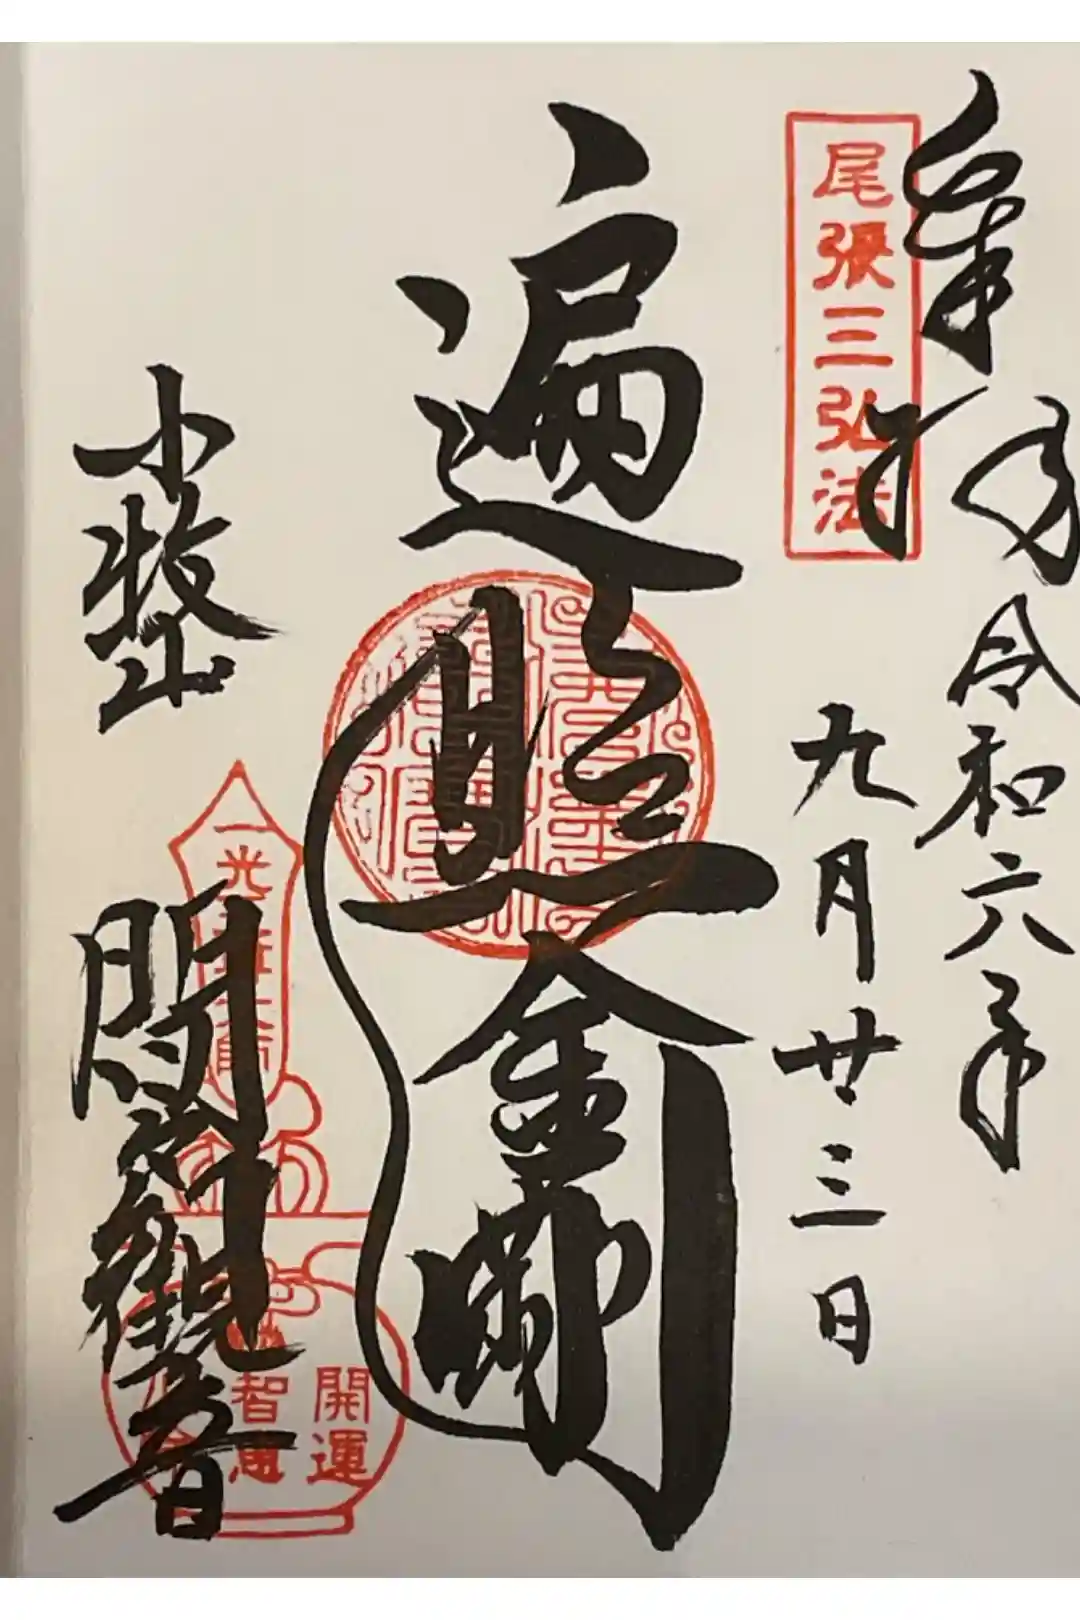 奉拝
令和六年
九月廿三日
尾張三弘法
遍照金剛
小牧山
間々観音
開運
智恵